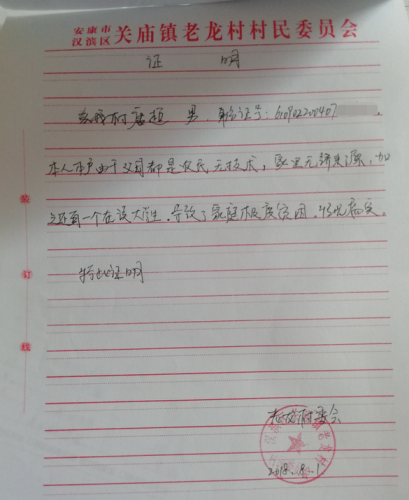 安康市
汉滨区 关庙镇老龙村村民委员会
证 明
兹我村 超 男,身份证号:6109022001407
本人本户由于父母都是农民,无技术,家里无经济来源,加
之还有一个在读大学生,导致了家庭极度贫困,情况属实。
特此证明
装
订
线
老龙村委会
2018.8.1